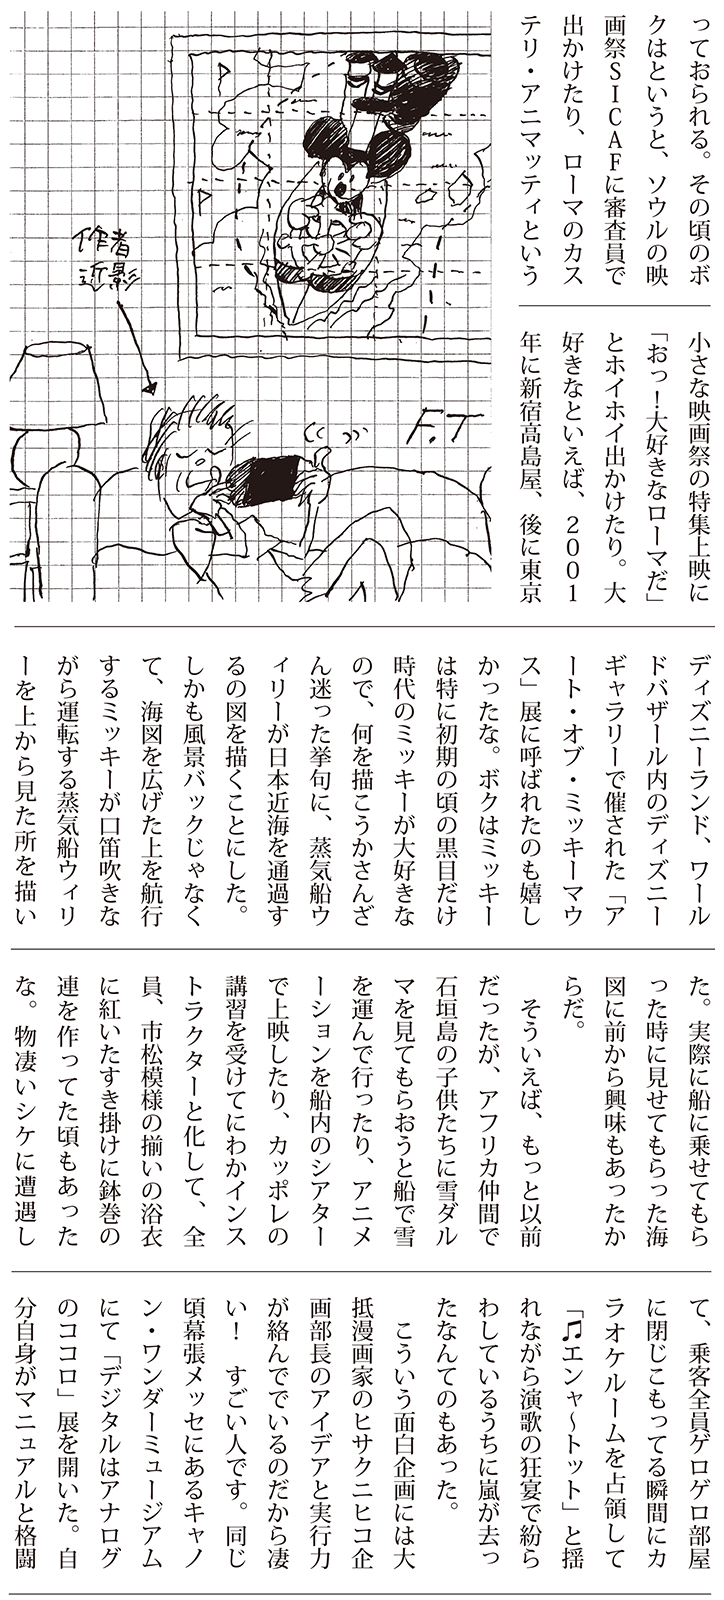 っておられる。その頃のボ
クはというと、ソウルの映
画祭SICAFに審査員で
出かけたり、ローマのカス
テリ・アニマッティという
小さな映画祭の特集上映に
「おっ！大好きなローマだ」
とホイホイ出かけたり。大
好きなといえば、2001
年に新宿高島屋、後に東京
ディズニーランド、ワール
ドバザール内のディズニー
ギャラリーで催された「ア
ート・オブ・ミッキーマウ
ス」展に呼ばれたのも嬉し
かったな。ボクはミッキー
は特に初期の頃の黒目だけ
時代のミッキーが大好きな
ので、何を描こうかさんざ
ん迷った挙句に、蒸気船ウ
ィリーが日本近海を通過す
るの図を描くことにした。
しかも風景バックじゃなく
て、海図を広げた上を航行
するミッキーが口笛吹きな
がら運転する蒸気船ウィリ
ーを上から見た所を描い
た。実際に船に乗せてもら
った時に見せてもらった海
図に前から興味もあったか
らだ。
そういえば、もっと以前
だったが、アフリカ仲間で
石垣島の子供たちに雪ダル
マを見てもらおうと船で雪
を運んで行ったり、アニメ
ーションを船内のシアター
で上映したり、カッポレの
講習を受けてにわかインス
トラクターと化して、全
員、市松模様の揃いの浴衣
に紅いたすき掛けに鉢巻の
連を作ってた頃もあった
な。物凄いシケに遭遇し
て、乗客全員ゲロゲロ部屋
に閉じこもってる瞬間にカ
ラオケルームを占領して
「♫エンャ〜トット」と揺
れながら演歌の狂宴で紛ら
わしているうちに嵐が去っ
たなんてのもあった。
こういう面白企画には大
抵漫画家のヒサクニヒコ企
画部長のアイデアと実行力
が絡んででいるのだから凄
い！　すごい人です。同じ
頃幕張メッセにあるキャノ
ン・ワンダーミュージアム
にて「デジタルはアナログ
のココロ」展を開いた。自
分自身がマニュアルと格闘
作者
近影
F.T